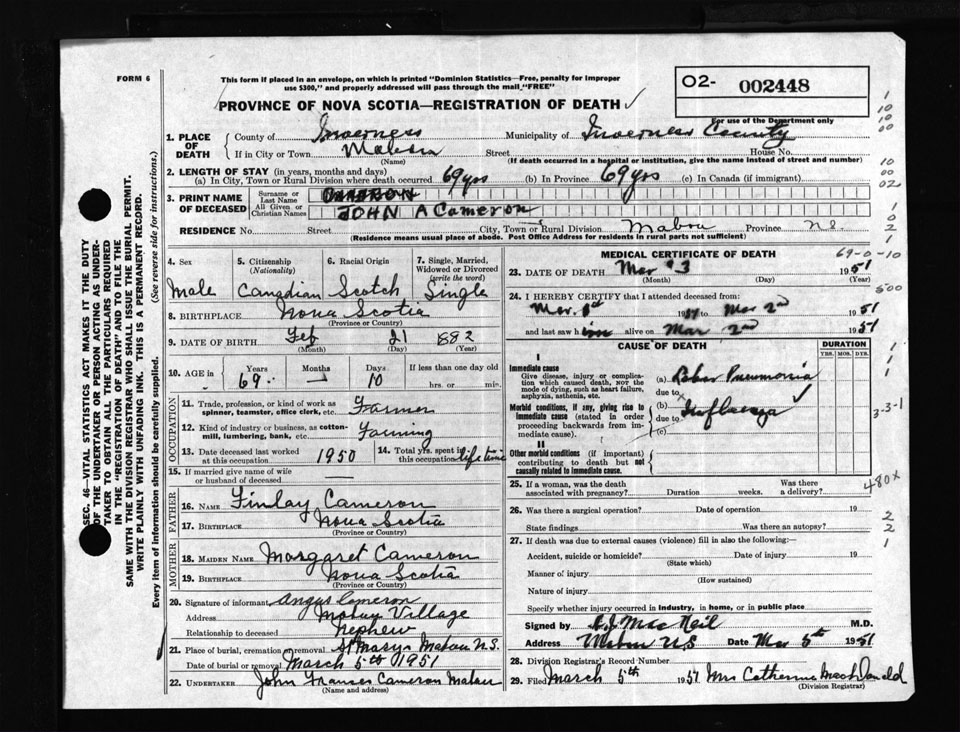 FORM 6
This form if placed in an envelope, on which is printed "Dominion Statistics—Free, penalty for improper
use $300," and properly addressed will pass through the mail "FREE"
O2- 002448
PROVINCE OF NOVA SCOTIA—REGISTRATION OF DEATH
For use of the Department only
1. PLACE OF DEATH County of Inverness Municipality of Inverness County
If in City or Town Mabou Street House No.
(Name) (If death occurred in a hospital or institution, give the name instead of street and number)
2. LENGTH OF STAY (in years, months and days)
(a) In City, Town or Rural Division where death occurred 69 yrs (b) In Province 69 yrs (c) In Canada (if immigrant)
3. PRINT NAME OF DECEASED Surname or Last Name CAMERON
All Given or Christian Names JOHN A Cameron
RESIDENCE No. Street City, Town or Rural Division Mabou Province N.S.
(Residence means usual place of abode. Post Office Address for residents in rural parts not sufficient)
4. Sex 5. Citizenship (Nationality) 6. Racial Origin 7. Single, Married, Widowed or Divorced (write the word)
Male Canadian Scotch Single
8. BIRTHPLACE Nova Scotia
(Province or Country)
9. DATE OF BIRTH Feb 21 1882
(Month) (Day) (Year)
10. AGE in Years Months Days If less than one day old
69 — 10 hrs. or min.
OCCUPATION
11. Trade, profession, or kind of work as spinner, teamster, office clerk, etc. Farmer
12. Kind of industry or business, as cotton-mill, lumbering, bank, etc. Farming
13. Date deceased last worked at this occupation 1950 14. Total yrs. spent in this occupation life time
15. If married give name of wife or husband of deceased —
FATHER
16. NAME Finlay Cameron
17. BIRTHPLACE Nova Scotia
(Province or Country)
MOTHER
18. MAIDEN NAME Margaret Cameron
19. BIRTHPLACE Nova Scotia
(Province or Country)
20. Signature of informant Angus Cameron
Address Mabou Village
Relationship to deceased Nephew
21. Place of burial, cremation or removal St Marys Mabou N.S.
Date of burial or removal March 5th 1951
22. UNDERTAKER John Frances Cameron Mabou
(Name and address)
MEDICAL CERTIFICATE OF DEATH
69-0-10
23. DATE OF DEATH Mar 3 1951
(Month) (Day) (Year)
24. I HEREBY CERTIFY that I attended deceased from:
Mar. 1st 1951 to Mar 2nd 1951
and last saw him alive on Mar 2nd 1951
CAUSE OF DEATH DURATION
YRS. MOS. DYS.
I
Immediate cause
Give disease, injury or complication which caused death, not the mode of dying, such as heart failure, asphyxia, asthenia, etc.
(a) Lobar Pneumonia
due to
Morbid conditions, if any, giving rise to immediate cause (stated in order proceeding backwards from immediate cause).
(b) Influenza
due to
(c)
II
Other morbid conditions (if important) contributing to death but not causally related to immediate cause.
3-3-1
480x
25. If a woman, was the death associated with pregnancy? Duration weeks. Was there a delivery?
26. Was there a surgical operation? Date of operation 19
State findings Was there an autopsy?
27. If death was due to external causes (violence) fill in also the following:—
Accident, suicide or homicide? Date of injury 19
(State which)
Manner of injury
(How sustained)
Nature of injury
Specify whether injury occurred in industry, in home, or in public place
Signed by MacNeil M.D.
Address Mabou N.S Date Mar 5th 1951
28. Division Registrar's Record Number
29. Filed March 5th 1951 Mrs Catherine MacDonald
(Division Registrar)
SEC. 46—VITAL STATISTICS ACT MAKES IT THE DUTY
OF THE UNDERTAKER OR PERSON ACTING AS UNDER-
TAKER TO OBTAIN ALL THE PARTICULARS REQUIRED
IN THE "REGISTRATION OF DEATH" AND TO FILE THE
SAME WITH THE DIVISION REGISTRAR WHO SHALL ISSUE THE BURIAL PERMIT.
WRITE PLAINLY WITH UNFADING INK. THIS IS A PERMANENT RECORD.
Every item of information should be carefully supplied. (See reverse side for instructions.)